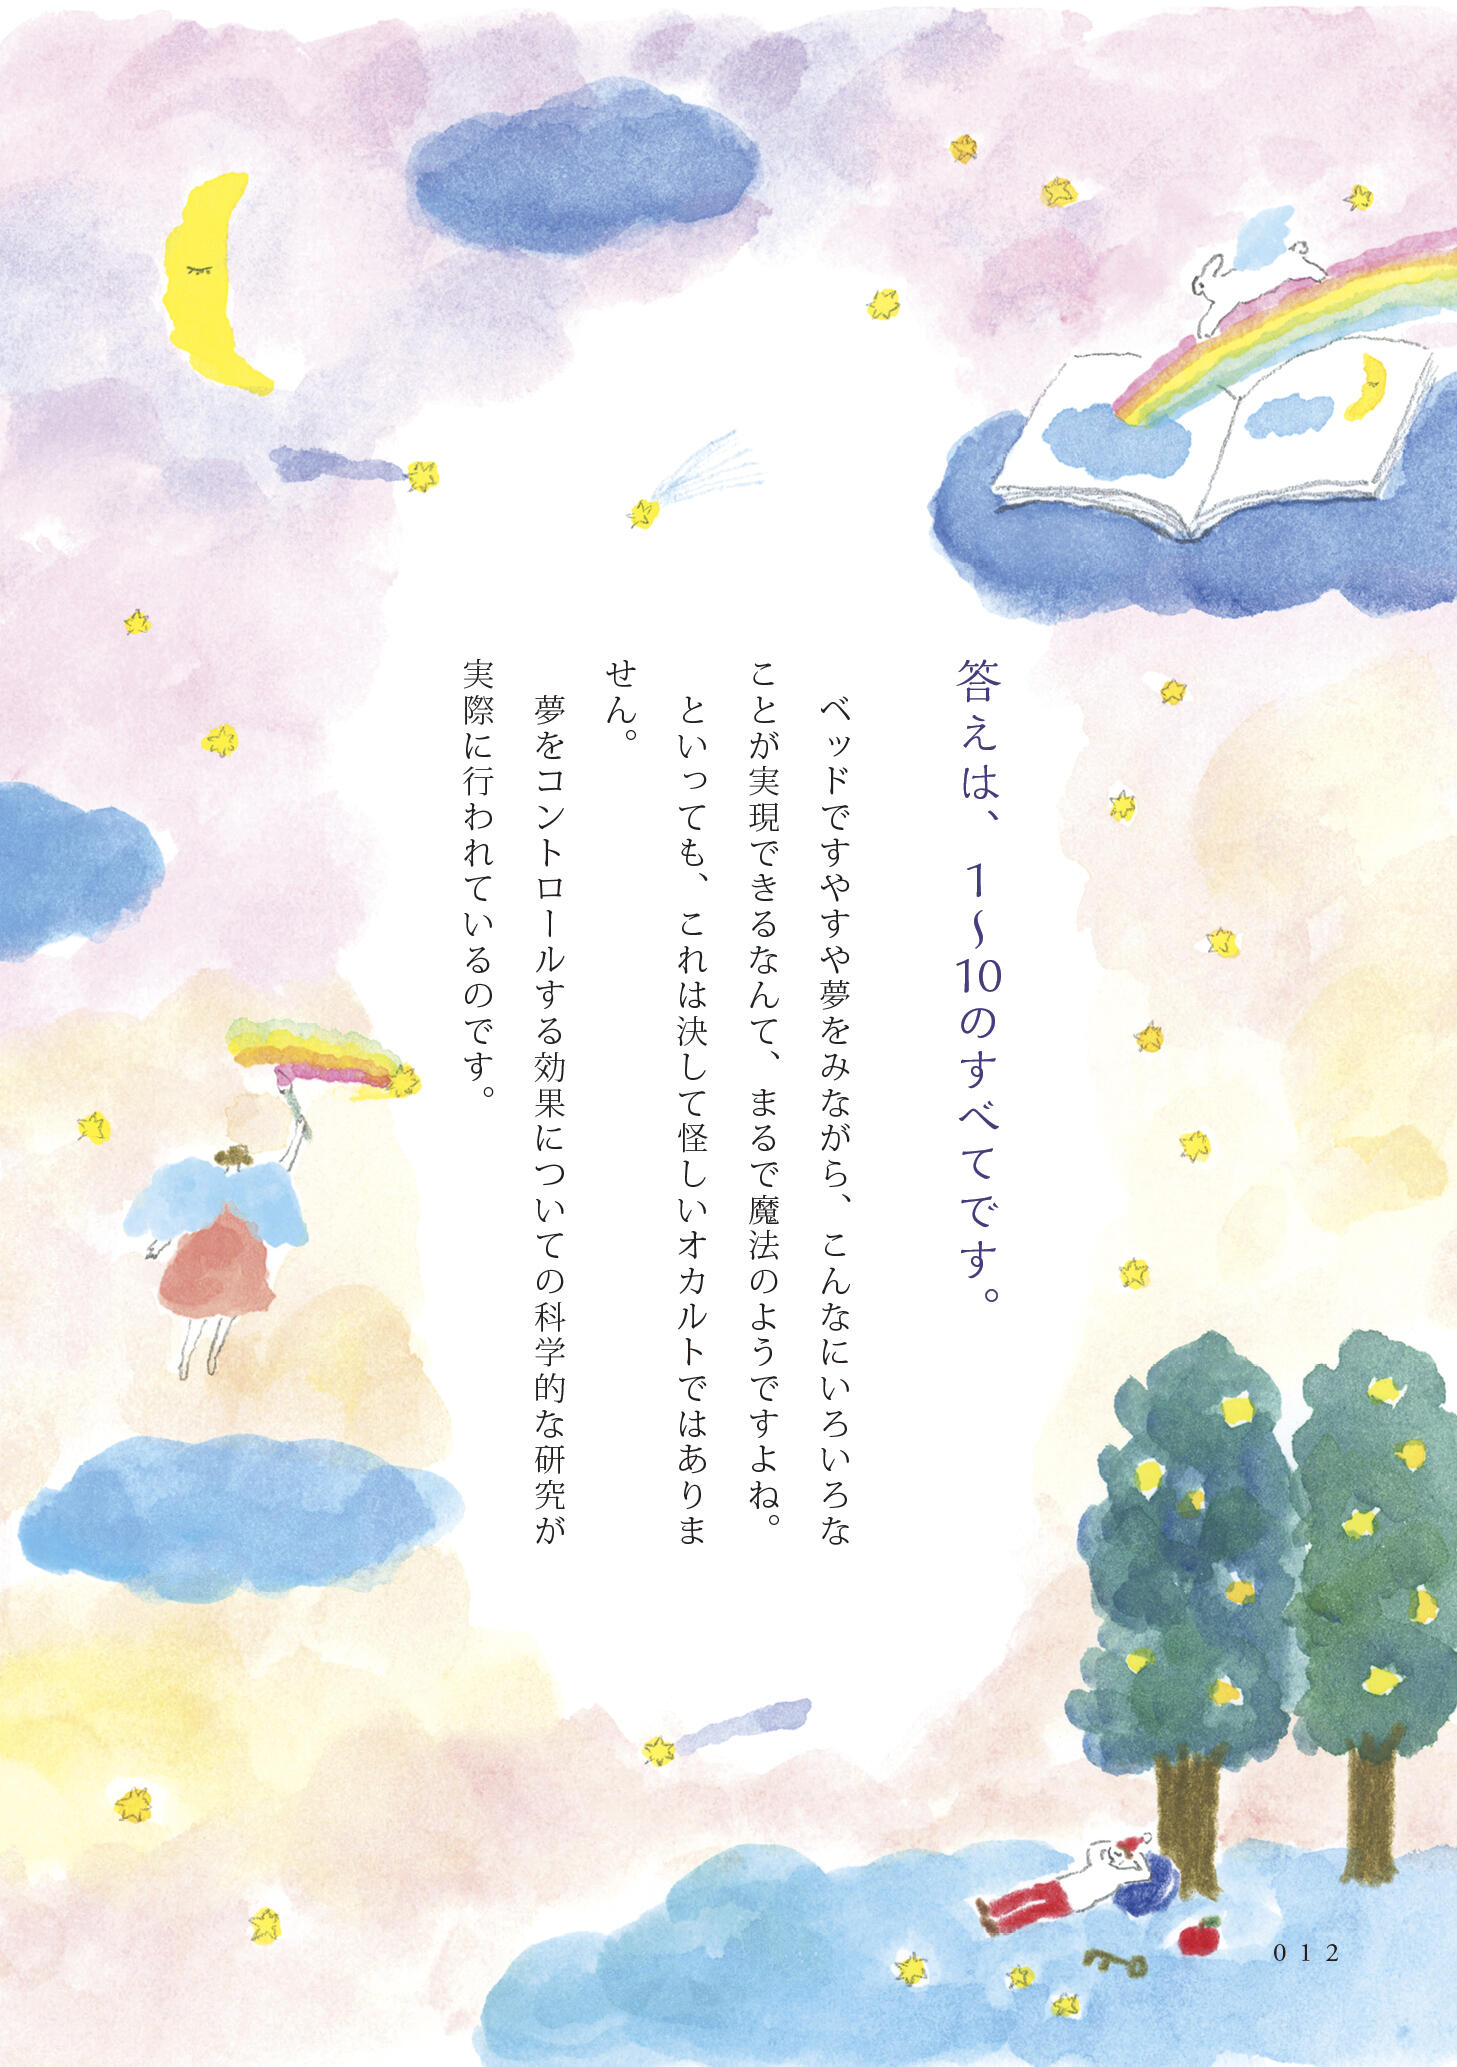 答えは、1〜10のすべてです。
ベッドですやすや夢をみながら、こんなにいろいろな
ことが実現できるなんて、まるで魔法のようですよね。
といっても、これは決して怪しいオカルトではありま
せん。
夢をコントロールする効果についての科学的な研究が
実際に行われているのです。
012